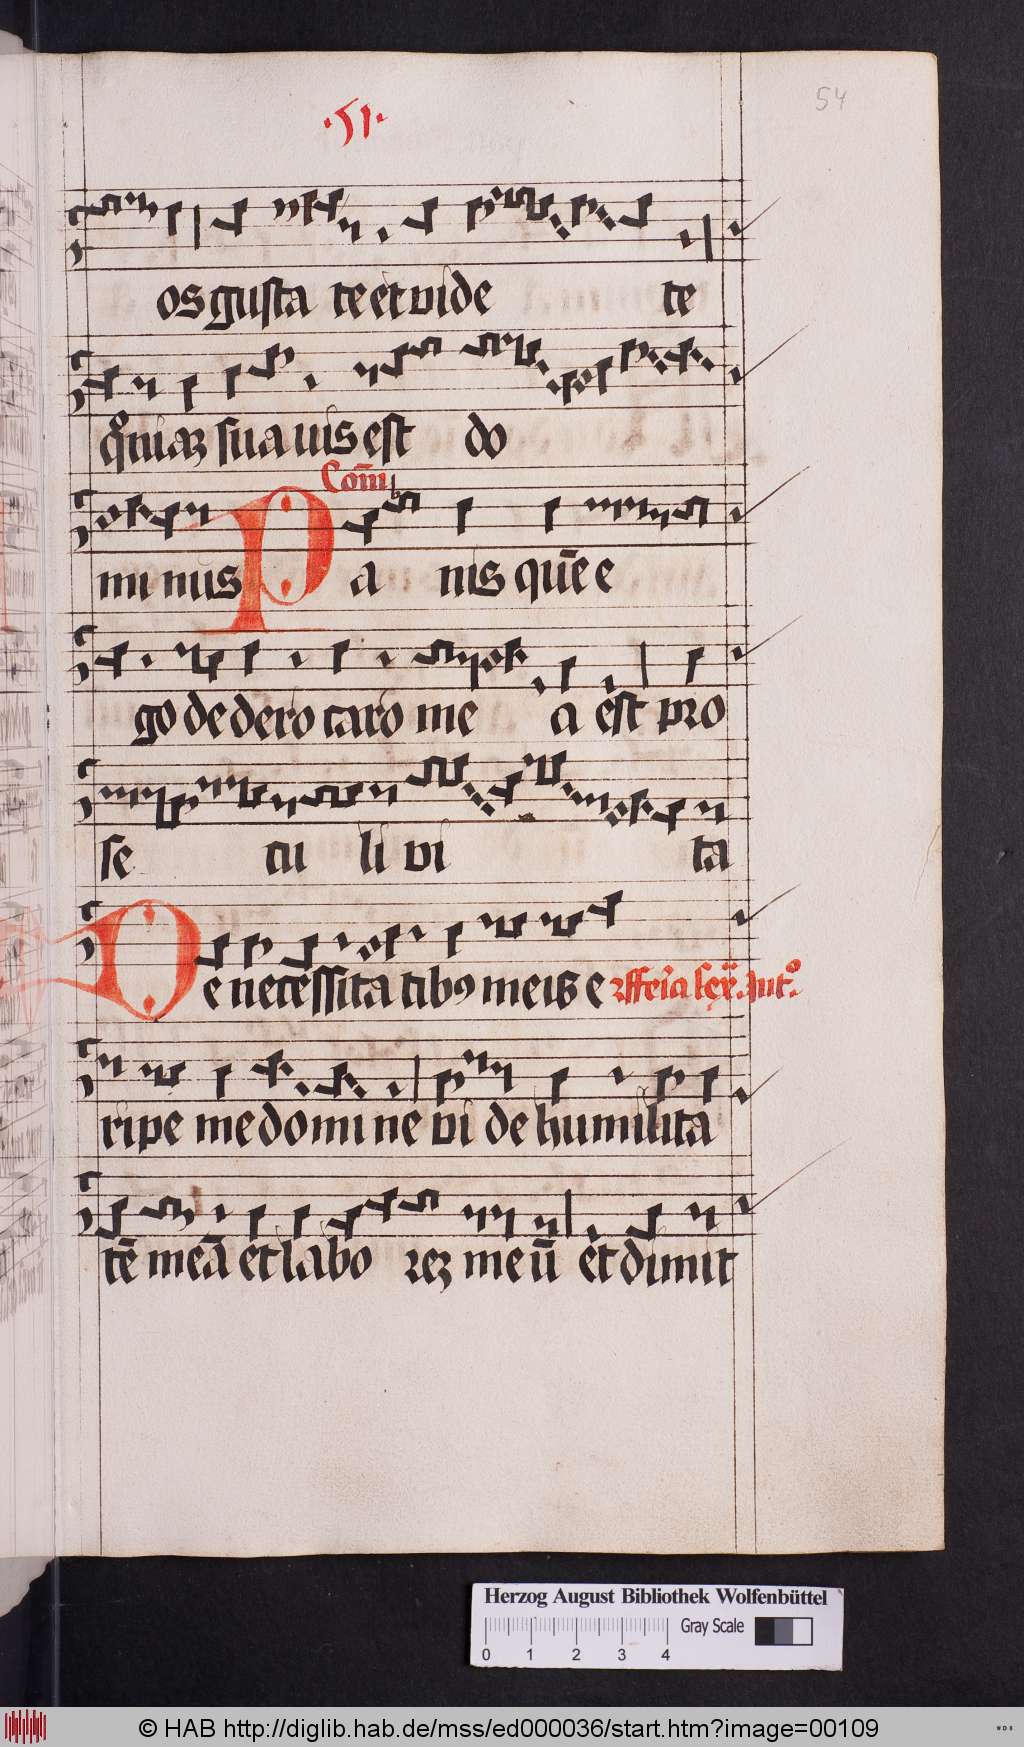 ·51·
54
os gusta te et vide te
qͦniaꝫ sua uis est do
Com̄
mi nus Pa nis quē e
go dedero caro me a est pro
se cu li vi ta
De necessita tibꝰ meis e ffer̄ia sex̄. Intͦ.
ripe me domi ne vi de humilita
tē meā et labo reꝫ meū et dimit
Herzog August Bibliothek Wolfenbüttel
Gray Scale
0 1 2 3 4
© HAB http://diglib.hab.de/mss/ed000036/start.htm?image=00109